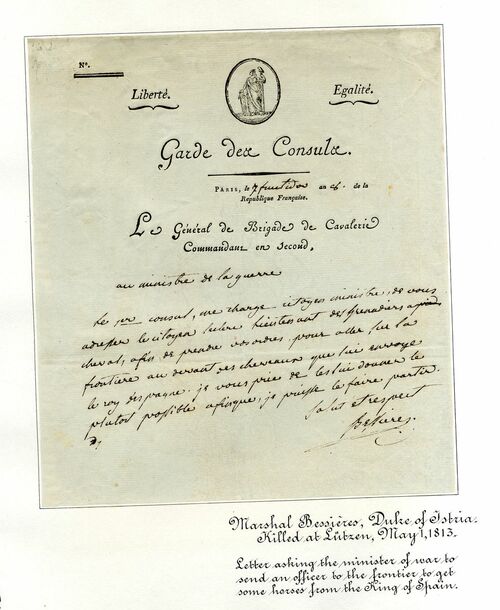 Nº.
Liberté.
Egalité.
Garde des Consuls.
PARIS, le 7 fructidor an 8. de la
République Française.
Le Général de Brigade de Cavalerie
Commandant en second,
au ministre de la guerre
Le 1er consul, me charge citoyen ministre, de vous
adresser le citoyen lieutenant des Grenadiers a
cheval, afin de prendre vos ordres pour aller sur la
frontiere au devant des chevaux que lui envoye
le roy despagne. je vous prie de les lui donner le
plutot possible afinque, je puisse le faire partir.
Salut et respect
Bessieres
Marshal Bessières, Duke of Istria.
Killed at Lützen, May 1, 1813.
Letter asking the minister of war to
send an officer to the frontier to get
some horses from the King of Spain.